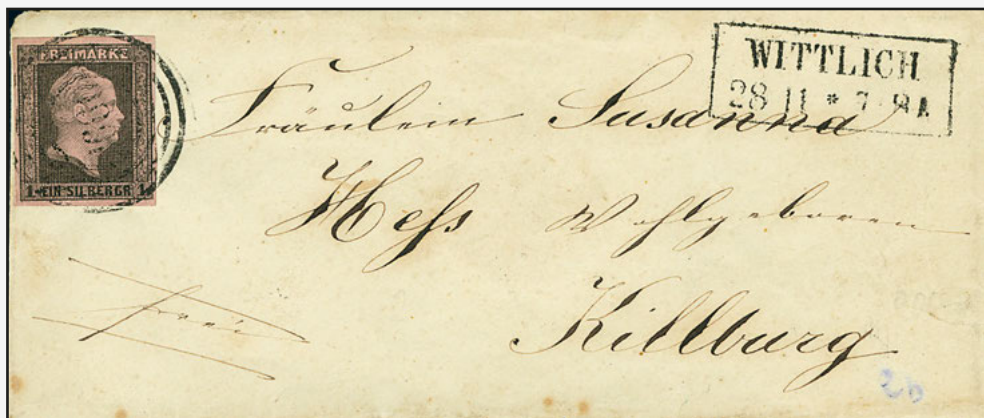 FREIMARKE
1 EIN SILBERGR. 1
WITTLICH
28 11 * 7-8 A
Fräulein Susanna
Hess Wohlgeboren
Killburg
frei
2b